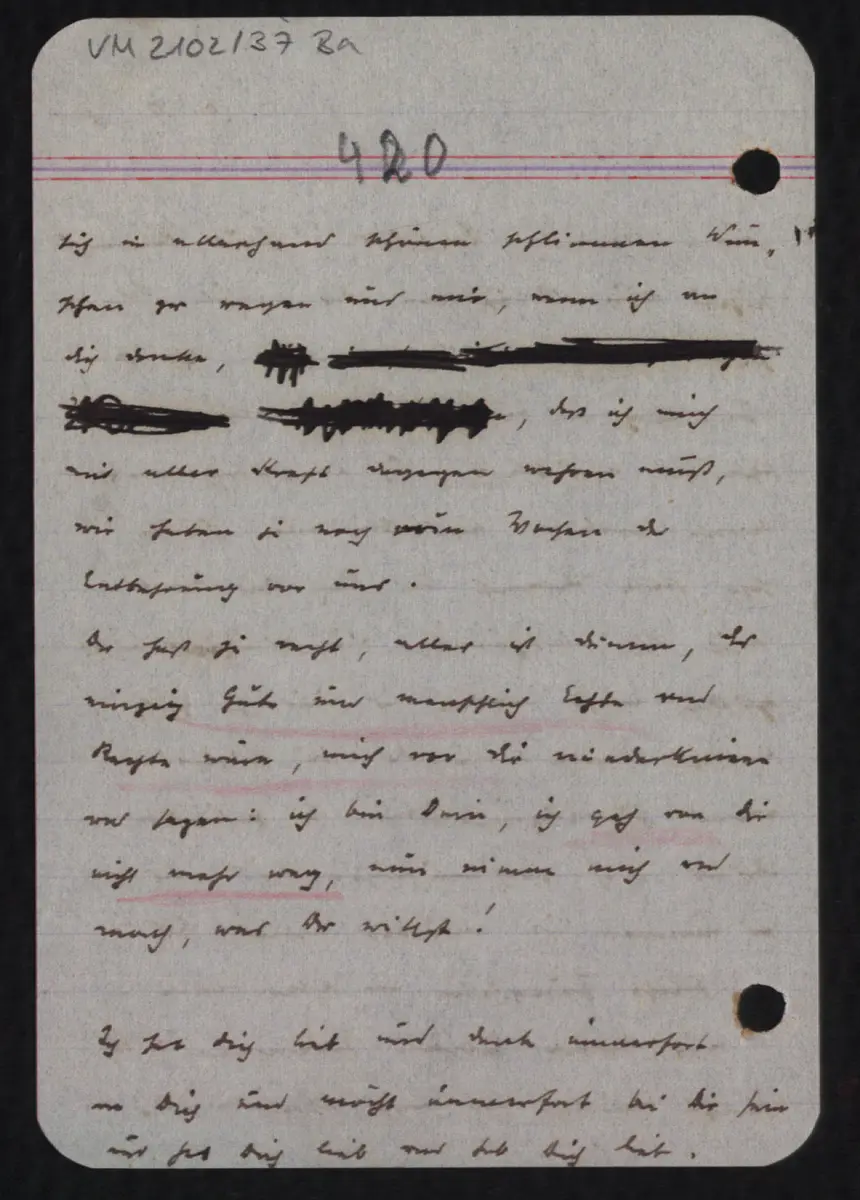 VM 2102/37 Ba
420
sich in allerhand schönen schlimmen Wün-
schen zu regen und mir, wenn ich an
dich denke,
, daß ich mich
mit aller Kraft dagegen wehren muß,
wir haben ja noch Wochen der
Entbehrung vor uns.
Du hast ja recht, alles ist dumm, das
einzig Gute und menschlich Echte und
Rechte wäre, mich vor dir niederknien
und sagen: ich bin Dein, ich geh von dir
nicht mehr weg, nun nimm mich und
mach, was Du willst!
Ich hab dich lieb und denk immerfort
an Dich und möcht immerfort bei dir sein
und hab Dich lieb und hab Dich lieb.